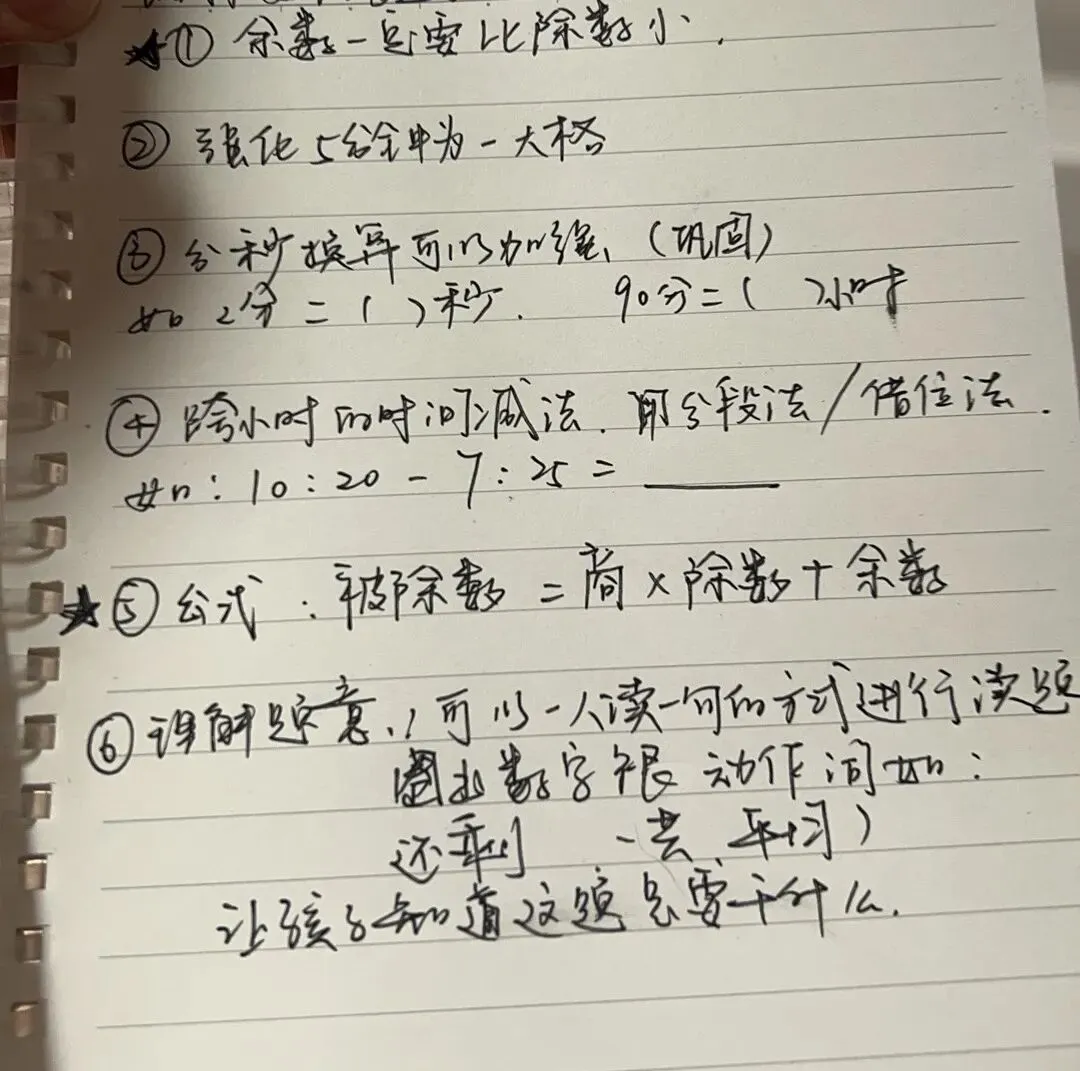 ★① 余数一定要比除数小.
② 强化5分钟为一大格
③ 分秒换算可以加强、(巩固)
如 2分 = ( )秒. 90分 = ( )小时
④ 跨小时的时间减法. 用分段法/借位法.
如: 10:20 - 7:25 = ____
★⑤ 公式: 被除数 = 商 × 除数 + 余数
⑥ 理解题意.(可以一人读一句的方式进行读题
圈出数字跟动作词如:
还剩 一共 平均)
让孩子知道这题需要干什么.